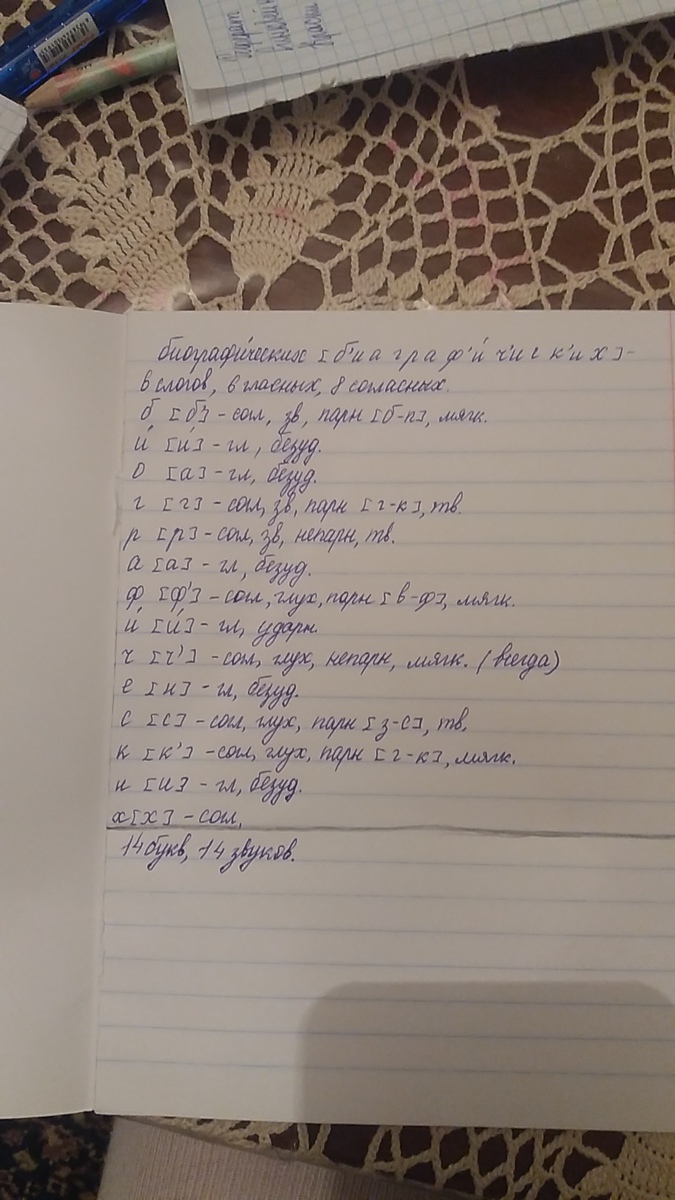 биографи́ческих [б'и а г р а ф' и́ ч'и с к'и х] -
6 слогов, 6 гласных, 8 согласных.
б [б'] - согл, зв, парн [б-п], мягк.
и [и] - гл, безуд.
о [а] - гл, безуд.
г [г] - согл, зв, парн [г-к], тв.
р [р] - согл, зв, непарн, тв.
а [а] - гл, безуд.
ф [ф'] - согл, глух, парн [в-ф], мягк.
и́ [и́] - гл, ударн.
ч [ч'] - согл, глух, непарн, мягк. (всегда)
е [и] - гл, безуд.
с [с] - согл, глух, парн [з-с], тв.
к [к'] - согл, глух, парн [г-к], мягк.
и [и] - гл, безуд.
х [х] - согл,
14 букв, 14 звуков.